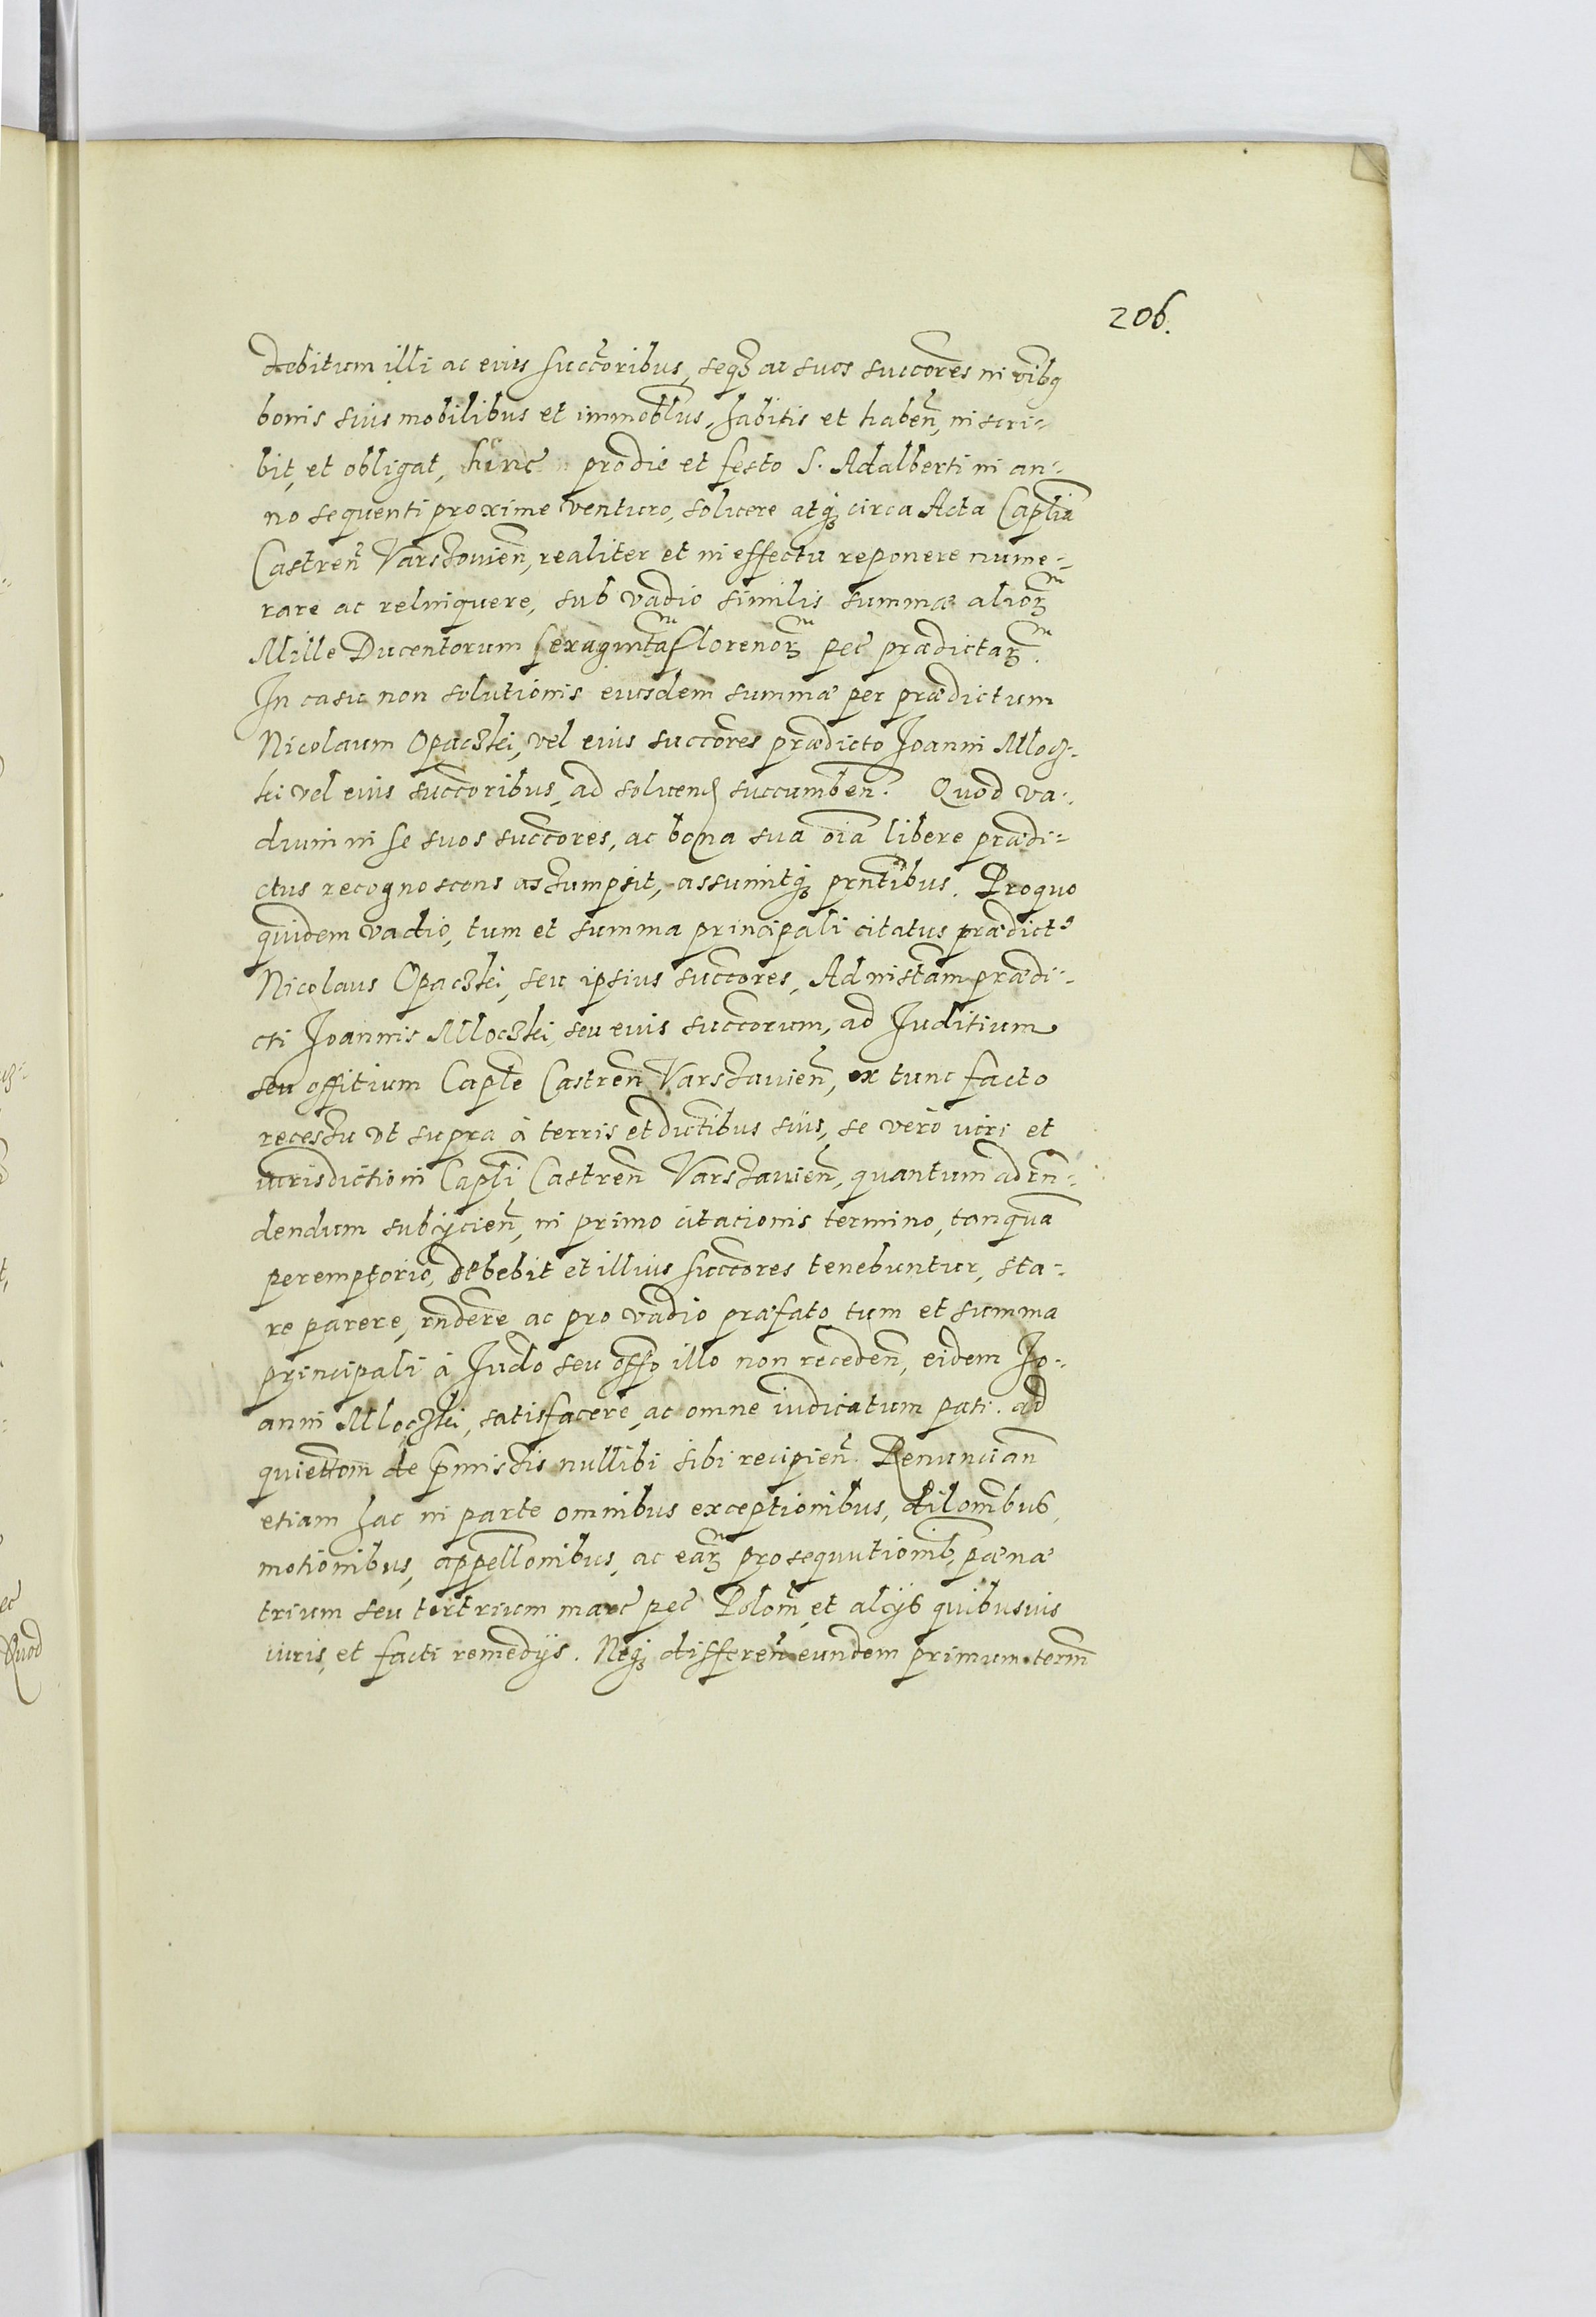 206.
debitum illi ac eius succ̃oribus, seqȝ ac suos succores in oĩbq
bonis suis mobilibus et immobl̃us, habitis et haben̄, inscri-
bit, et obligat, hinc pro die et festo S. Adalberti in an-
no sequenti proxime venturo, soluere atqȝ circa Acta Capt̃ia
Castren̄ Varschouien̄, realiter et in effectu reponere nume-
rare ac relinquere, sub vadio similis summæ alioꝝ
Mille Ducentorum sexaginta florenoꝝ pec̃ prædictaꝝ.
In casu non solutionis eiusdem summæ per prædictum
Nicolaum Opaczki, vel eius succores prædicto Joanni Mlocz-
ki vel eius succ̃oribus, ad soluend̃ succumben̄. Quod va-
dium in se suos succores, ac bona sua oĩa libere prædi-
ctus recognoscens assumpsit, assumitqȝ prñtibus. Pro quo
quidem vadio, tum et summa principali citatus prædict9
Nicolaus Opaczki, seu ipsius succores, Ad inst̃am prædi-
cti Joannis Mloczki, seu eius succorum, ad Juditium
seu offitium Capt̃e Castren̄ Varschauien̄, ex tunc facto
recessu vt supra à terris et dict̃ibus suis, se verò iuri et
iurisdictioni Capt̃i Castren̄ Varschauien̄, quantum ad rñ-
dendum subijcien̄, in primo citationis termino, tanquã
peremptorio, debebit et illius succores tenebuntur, sta-
re parere, rñdere ac pro vadio præfato tum et summa
principali à Judo seu offo illo non receden̄, eidem Jo-
anni Mloczki, satisfacere, ac omne iudicatum pati. ad
quiettom̃ de p̃missis nullibi sibi recipien̄. Renuncian̄
etiam hac in parte omnibus exceptionibus, dilom̃bus,
motionibus, appellonibus, ac eaꝝ prosequutionib, pœnæ
trium seu ter trium marc̃ pec̃ Polom̃, et alijs quibusuis
iuris, et facti remedijs. Neqȝ differen̄ eundem primum term̄